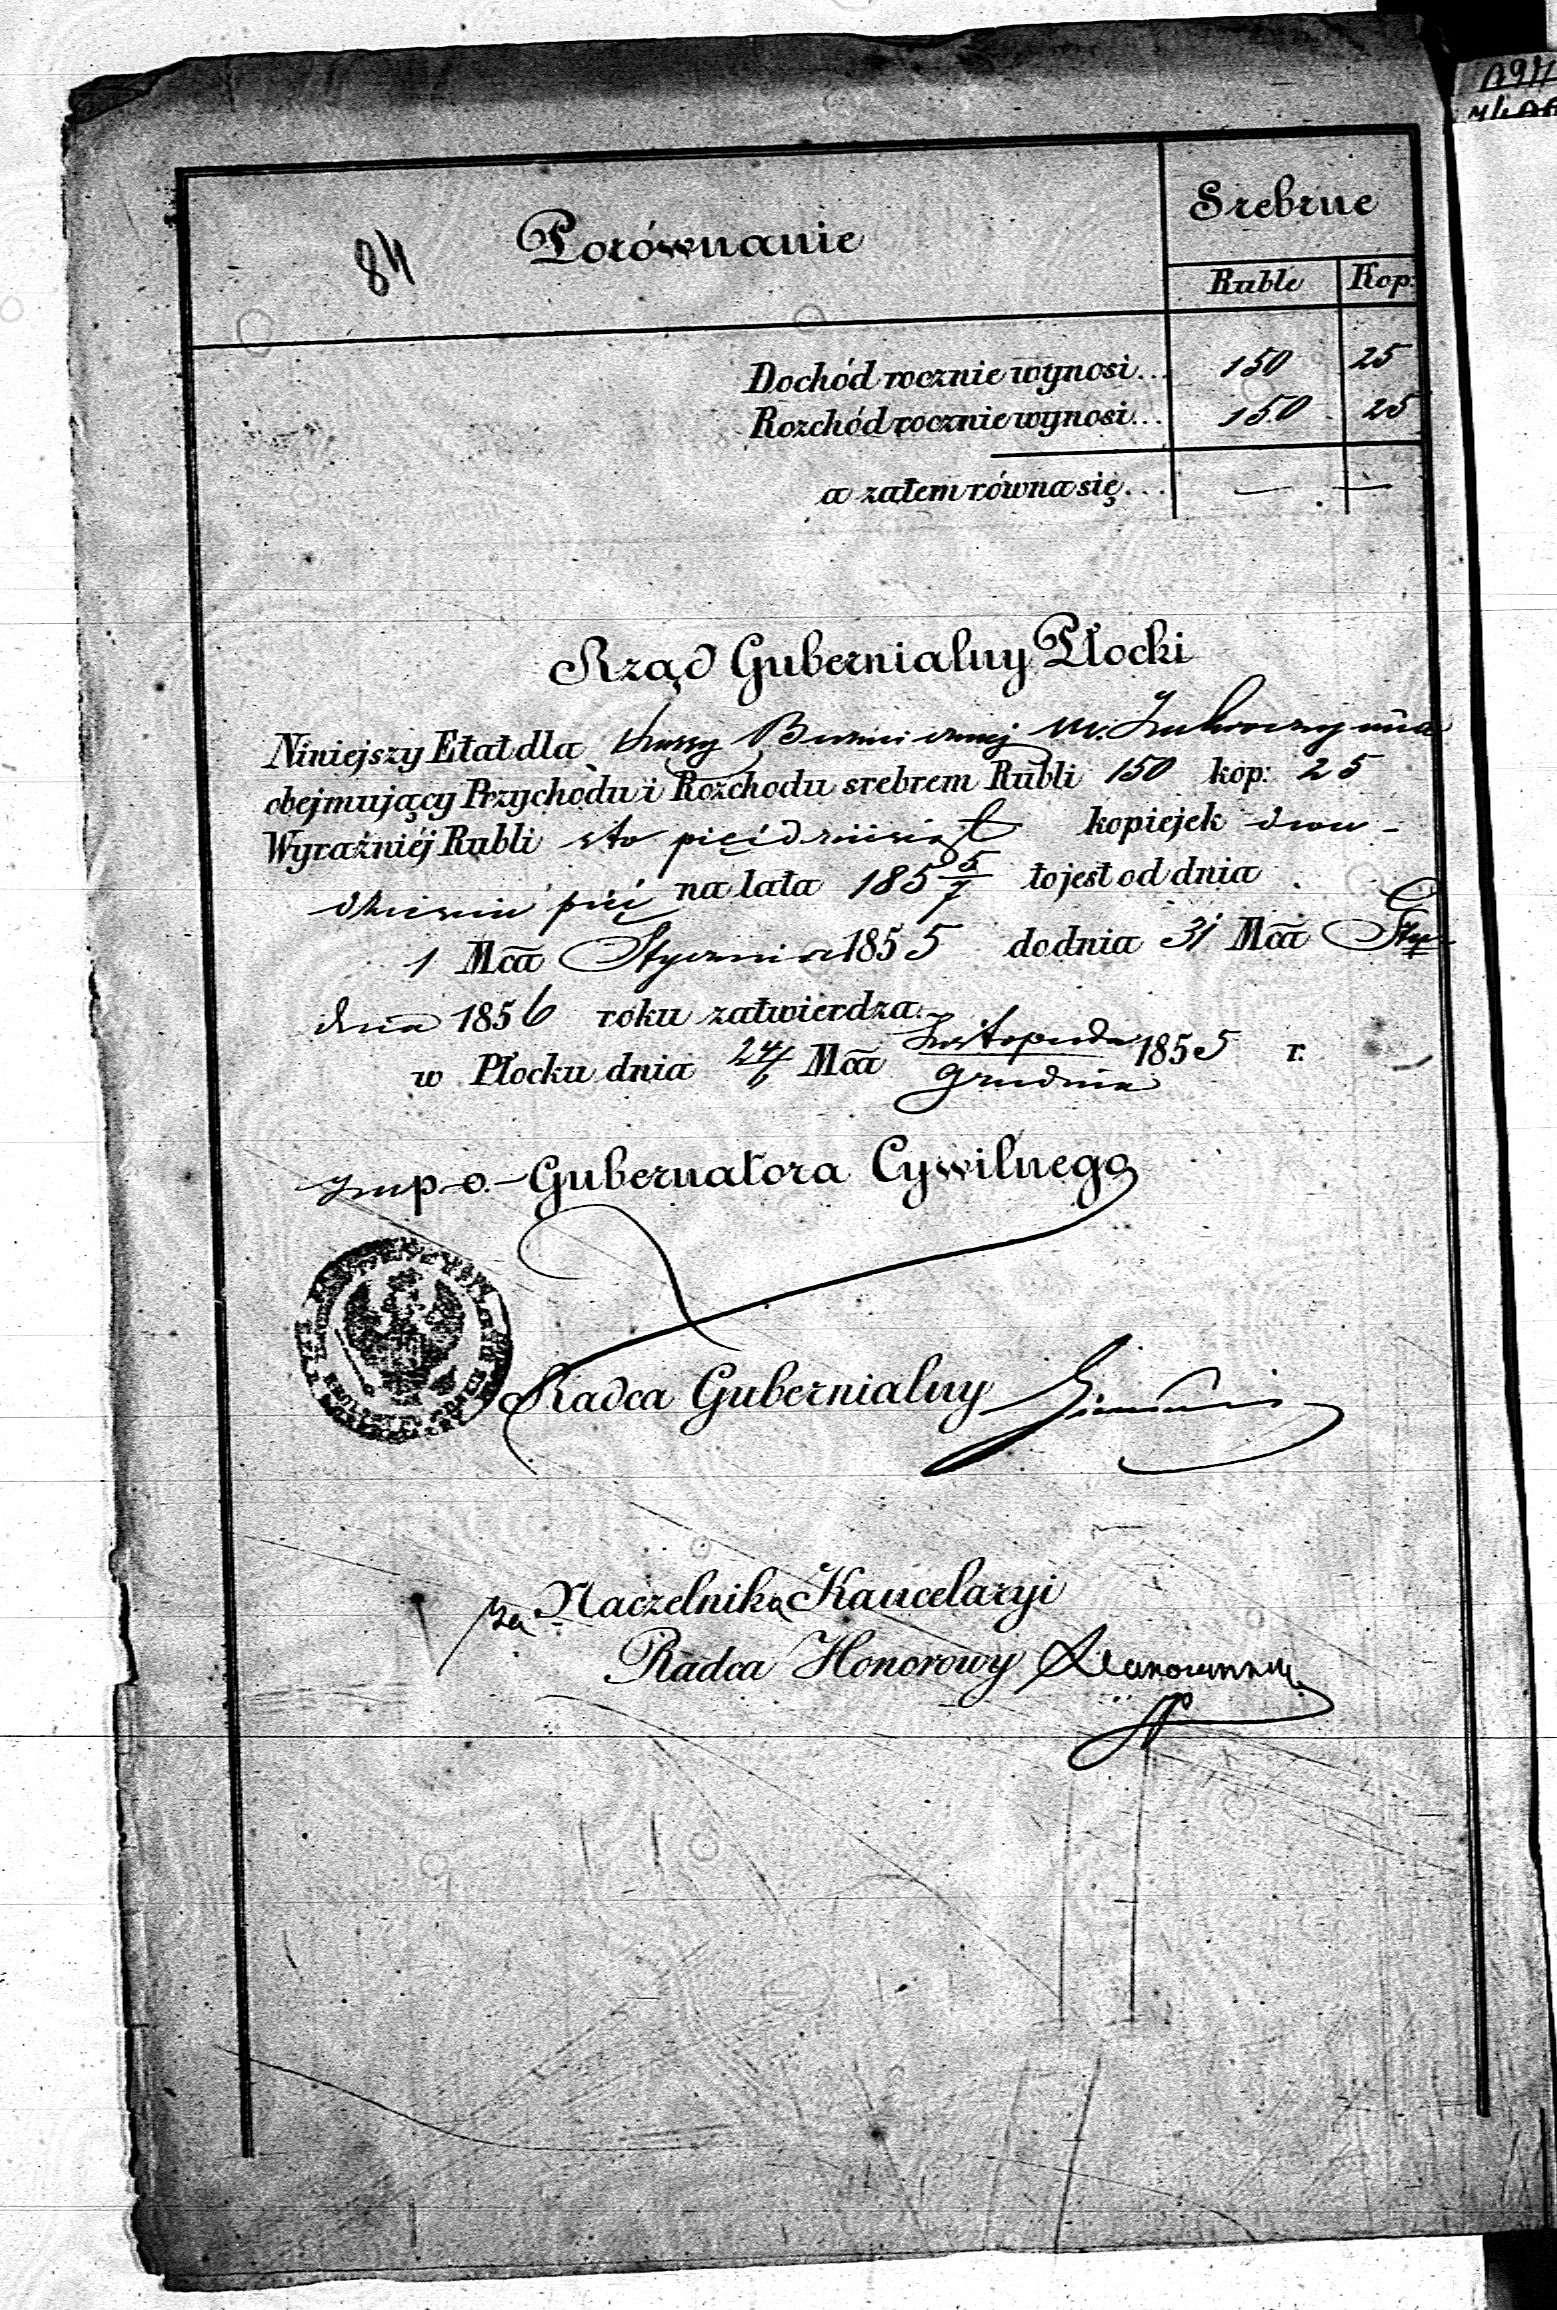 84
Porównanie
Srebrne
Ruble Kop:
Dochód rocznie wynosi... 150 25
Rozchód rocznie wynosi... 150 25
a zatem równa się... — —
Rząd Gubernialny Płocki
Niniejszy Etat dla Kassy Bożnicznej m.
obejmujący Przychodu i Rozchodu srebrem Rubli 150 kop: 25
Wyraźniéj Rubli sto pięćdziesiąt kopiejek dwu-
dzieścia pięć na lata 185 5/7 to jest od dnia
1 Mca Stycznia 1855 do dnia 31 Mca
1856 roku zatwierdza.
w Płocku dnia 24/6 Mca Listopada/Grudnia 1855 r.
p.o. Gubernatora Cywilnego
Radca Gubernialny
za Naczelnika Kancelaryi
Radca Honorowy